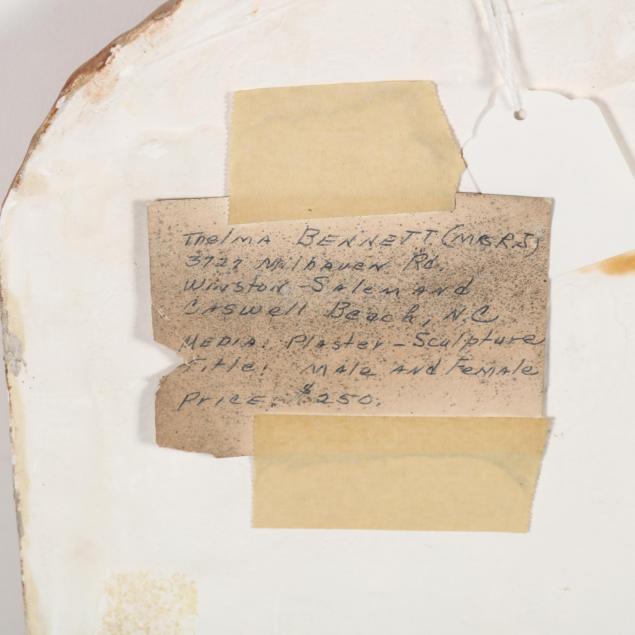 Thelma BENNETT (MRS.)
3727 Milhaven Rd.
Winston-Salem and
Caswell Beach, N.C.
MEDIA: Plaster-Sculpture
Title: Male and Female
Price: $250.